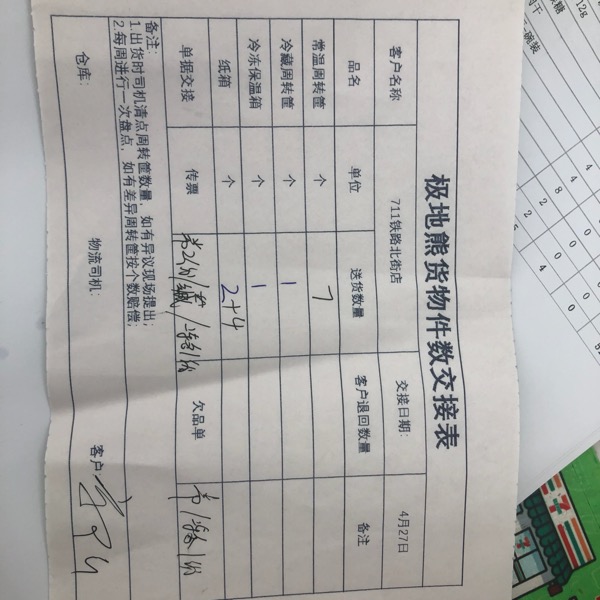 极地熊货物件数交接表
客户名称 711铁路北街店 交接日期: 4月27日
品名 单位 送货数量 客户退回数量 备注
常温周转筐 个 7
冷藏周转筐 个 1
冷冻保温箱 个 1
纸箱 个 2+4
单据交接 传票 欠品单
备注:
1.出货时司机清点周转筐数量,如有异议现场提出;
2.每周进行一次盘点,如有差异周转筐按个数赔偿;
仓库: 物流司机: 客户: